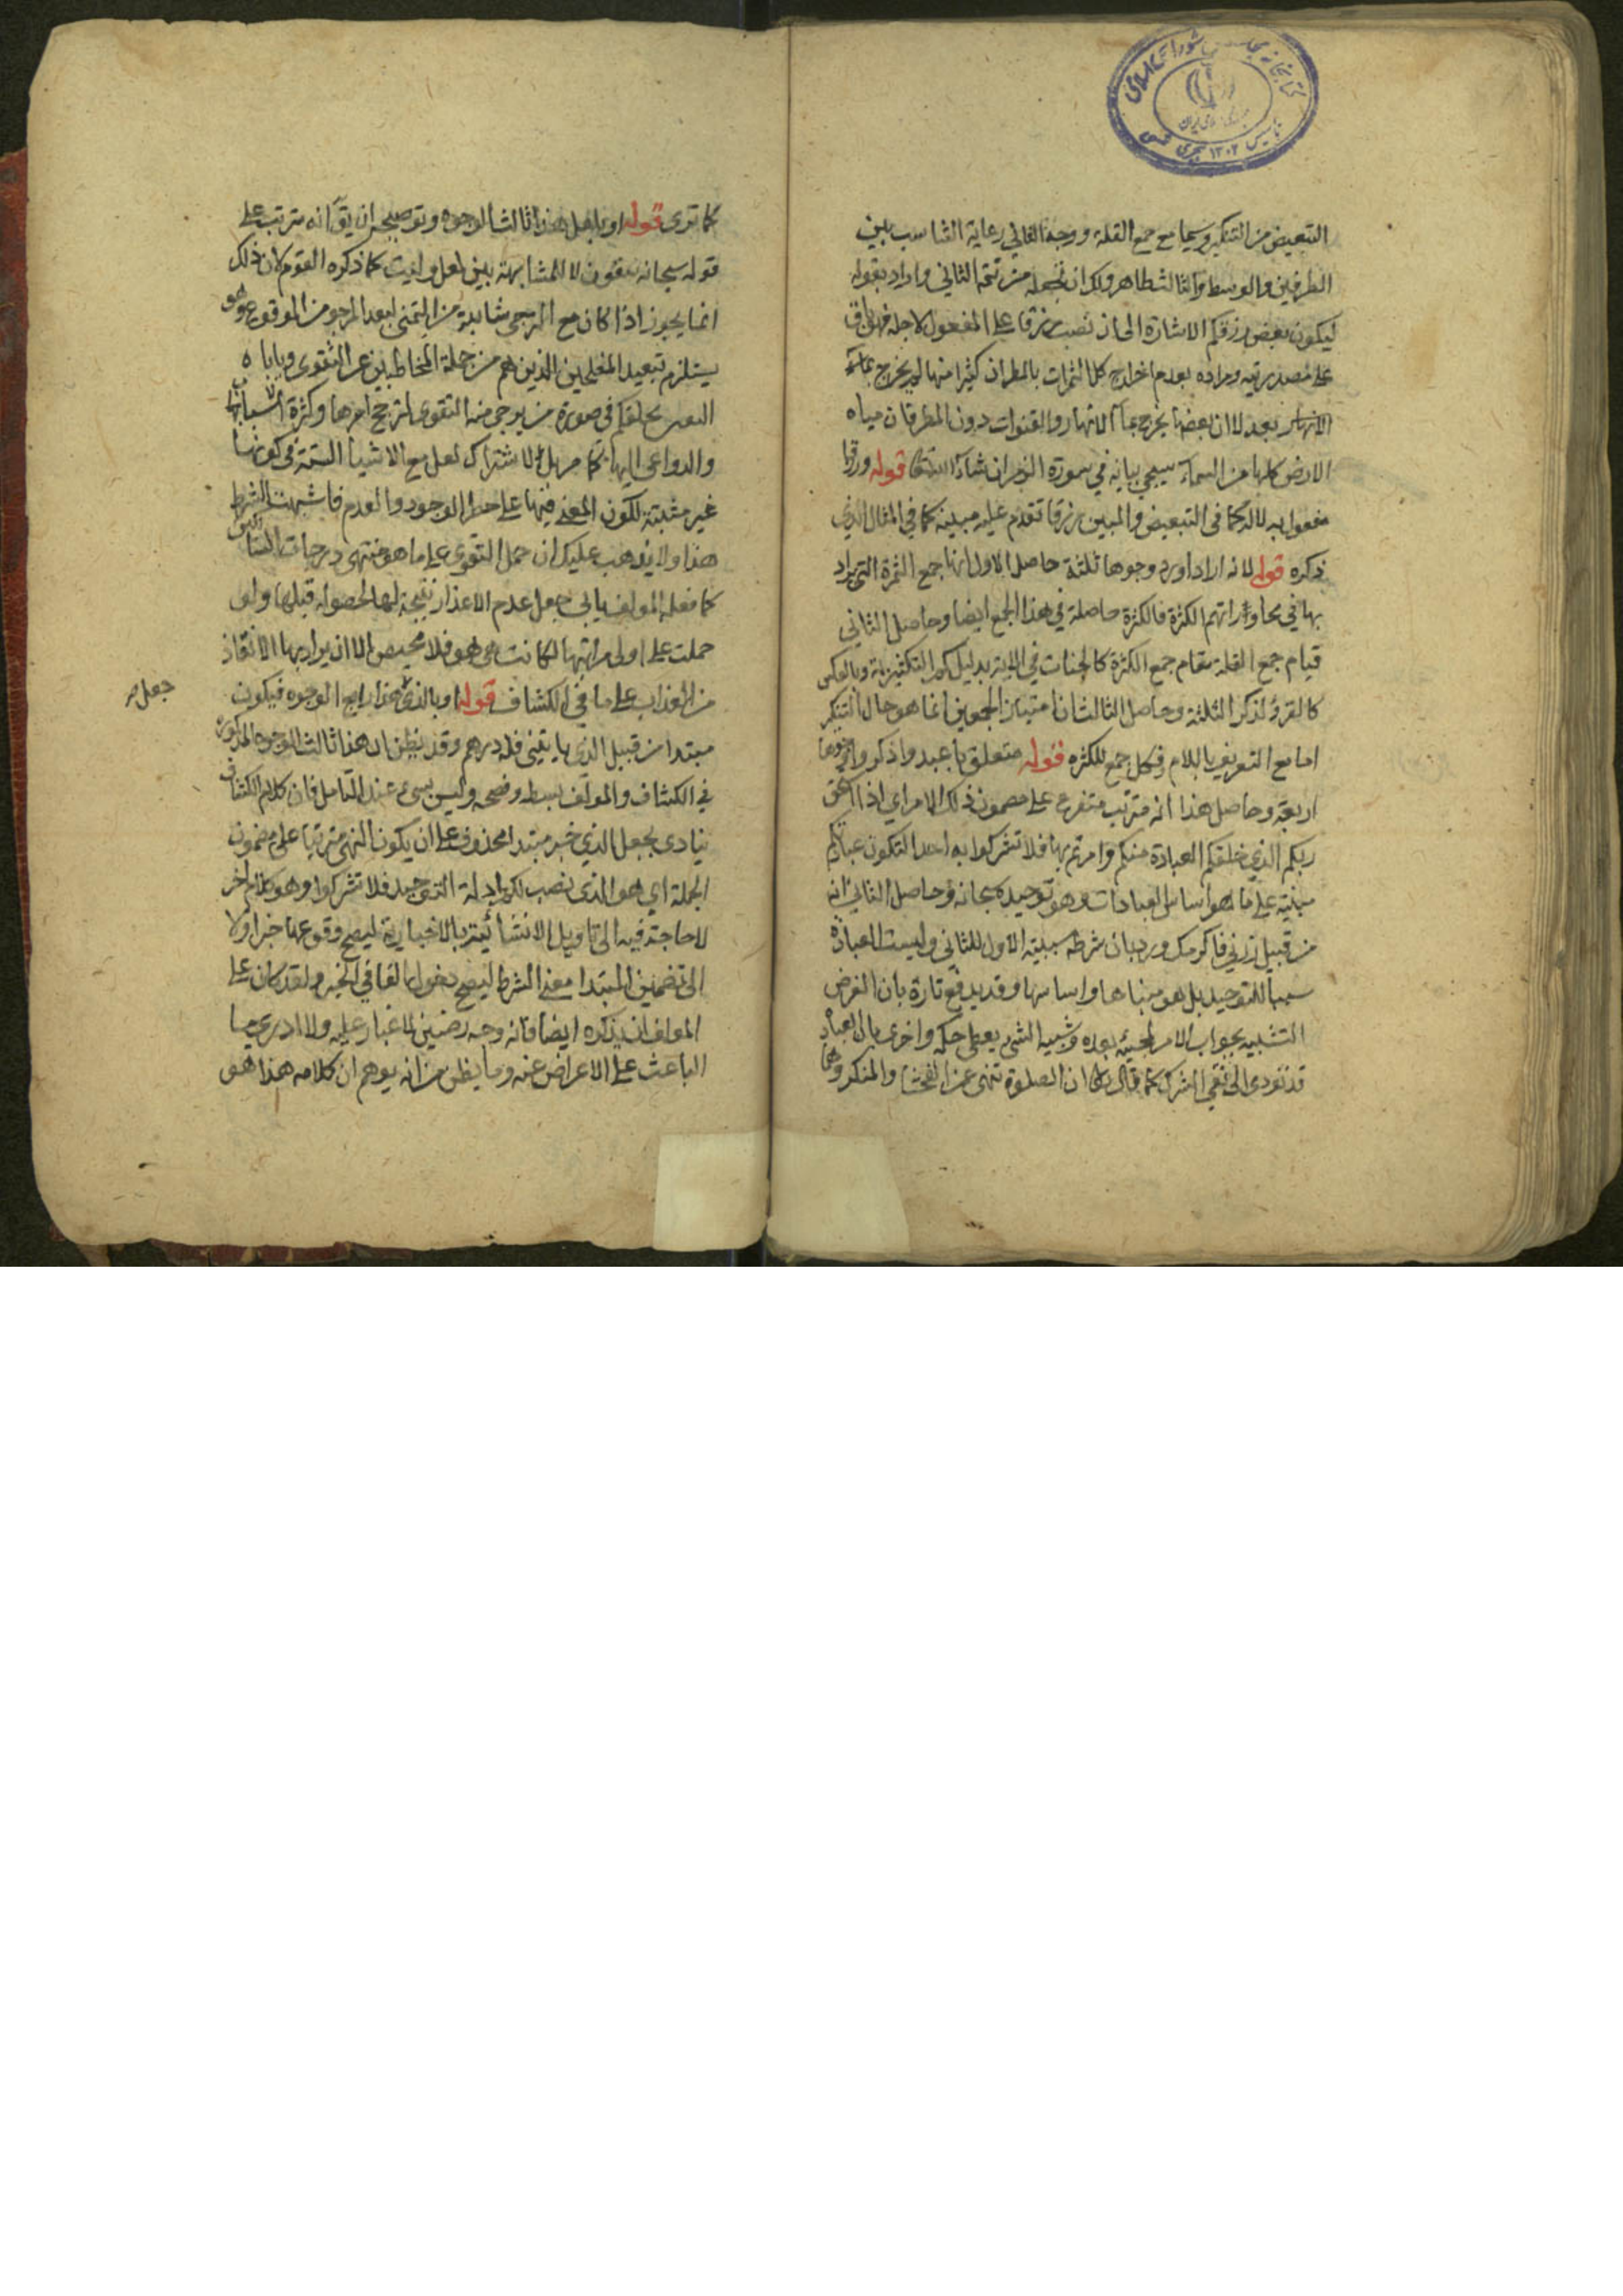 التبعيض من التنكير وسيما مع جمع القلة ووجه الثاني رعاية التناسب بين
الطرفين والوسط والثالث ظاهر ولك ان تجعله من تتمة الثاني واراد بقوله
ليكون بعض رزقكم الاشارة الى ان نصب رزقا على المفعول لاجله فهو باق
على مصدريته ومراده بعدم اخراج كل الثمرات بالمطر ان كثيرا منها لم يخرج بماء
بعد لا ان بعضها يخرج بماء الانهار والقنوات دون المطر فان مياه
الارض كلها من السماء سيجي بيانه في سورة الزمر ان شاء الله تعالى قوله ورزقا
مفعول به لا له كما في التبعيض والمبين رزقا تقدم عليه مبينه كما في المثال الذي
ذكره قوله لانه اراد اورد وجوها ثلثة حاصل الاول انها جمع الثمرة التي يراد
بها في محاوراتهم الكثرة فالكثرة حاصلة في هذا الجمع ايضا وحاصل الثاني
قيام جمع القلة مقام جمع الكثرة كالجنات في الاية بدليل كم التكثيرية وبالعكس
كالقروء لذكر الثلثة وحاصل الثالث ان امتياز الجمعين انما هو حال التنكر
اما مع التعريف باللام فكل جمع للكثره قوله متعلق باعبدوا ذكروا وجوها
اربعة وحاصل هذا انه مترتب متفرع على مضمون ذلك الامر اي اذا استحق
ربكم الذي خلقكم العبادة منكم وامرتم بها فلا تشركوا به احدا لتكون عبادتكم
مبنية على ما هو اساس العبادات وهو توحيده سبحانه وحاصل الثاني انه
من قبيل زرني فاكرمك ورد بان شرطه سببية الاول للثاني وليست العبادة
سببا للتوحيد بل هو مبناها واساسها وقد يدفع تارة بان الغرض
التشبيه بجواب الامر لمجيئه بعده وشبيه الشئ يعطى حكمه واخرى بان العبادة
قد تودى الى نفي الشرك كما قال تعالى ان الصلوة تنهى عن الفحشا والمنكر وهما
كما ترى قوله او بلعل هذا ثالث الوجوه وتوضيحه ان يق انه مترتب على
قوله سبحانه تتقون لا للمشابهة بين لعل وليت كما ذكره القوم لان ذلك
انما يجوز اذا كان مع الترجى شائبة من التمنى لبعد المرجو من الوقوع وهو
يستلزم تبعيد المفلحين الذين هم من جملة المخاطبين عن التقوى وياباه
بخلقكم في صورة من يرجى منه التقوى لترجح امرها وكثرة اسبابها
والدواعى اليها كما مر بل لاشتراك لعل مع الاشياء الستة في كونها
غير مثبتة لكون المعنى فيها على خطر الوجود والعدم فاشبهت الشرط
هذا ولا يذهب عليك ان حمل التقوى على ما هو منتهى درجات السالكين
كما فعله المولف يابى جعل عدم الاعذار نتيجة لها لحصوله قبلها ولو
حملت على اولى مراتبها لكانت هي هو فلا محيص الا ان يراد بها الانقاذ
من العذاب على ما في الكشاف قوله او بالذي هذا رابع الوجوه فيكون
جعل
مبتدا من قبيل الذي ياتيني فله درهم وقد يظن ان هذا ثالث الوجوه المذكورة
في الكشاف والمولف بسطه وضحه وليس بسىء عند التامل فان كلام الكشاف
ينادى بجعل الذي خبر مبتدا محذوف على ان يكون النهى مترتبا على مضمون
الجملة اي هو الذي نصب لكم ادلة التوحيد فلا تشركوا وهو كلام اخر
لا حاجة فيه الى تاويل الانشائية بالاخبارية ليصح وقوعها خبرا ولا
الى تضمين المبتدا معنى الشرط ليصح دخول الفا في الخبر ولقد كان على
المولف ان يذكره ايضا فانه وجه رضين لا غبار عليه ولا ادرى ما
الباعث على الاعراض عنه وما يظن من انه يوهم ان كلامه هذا هو